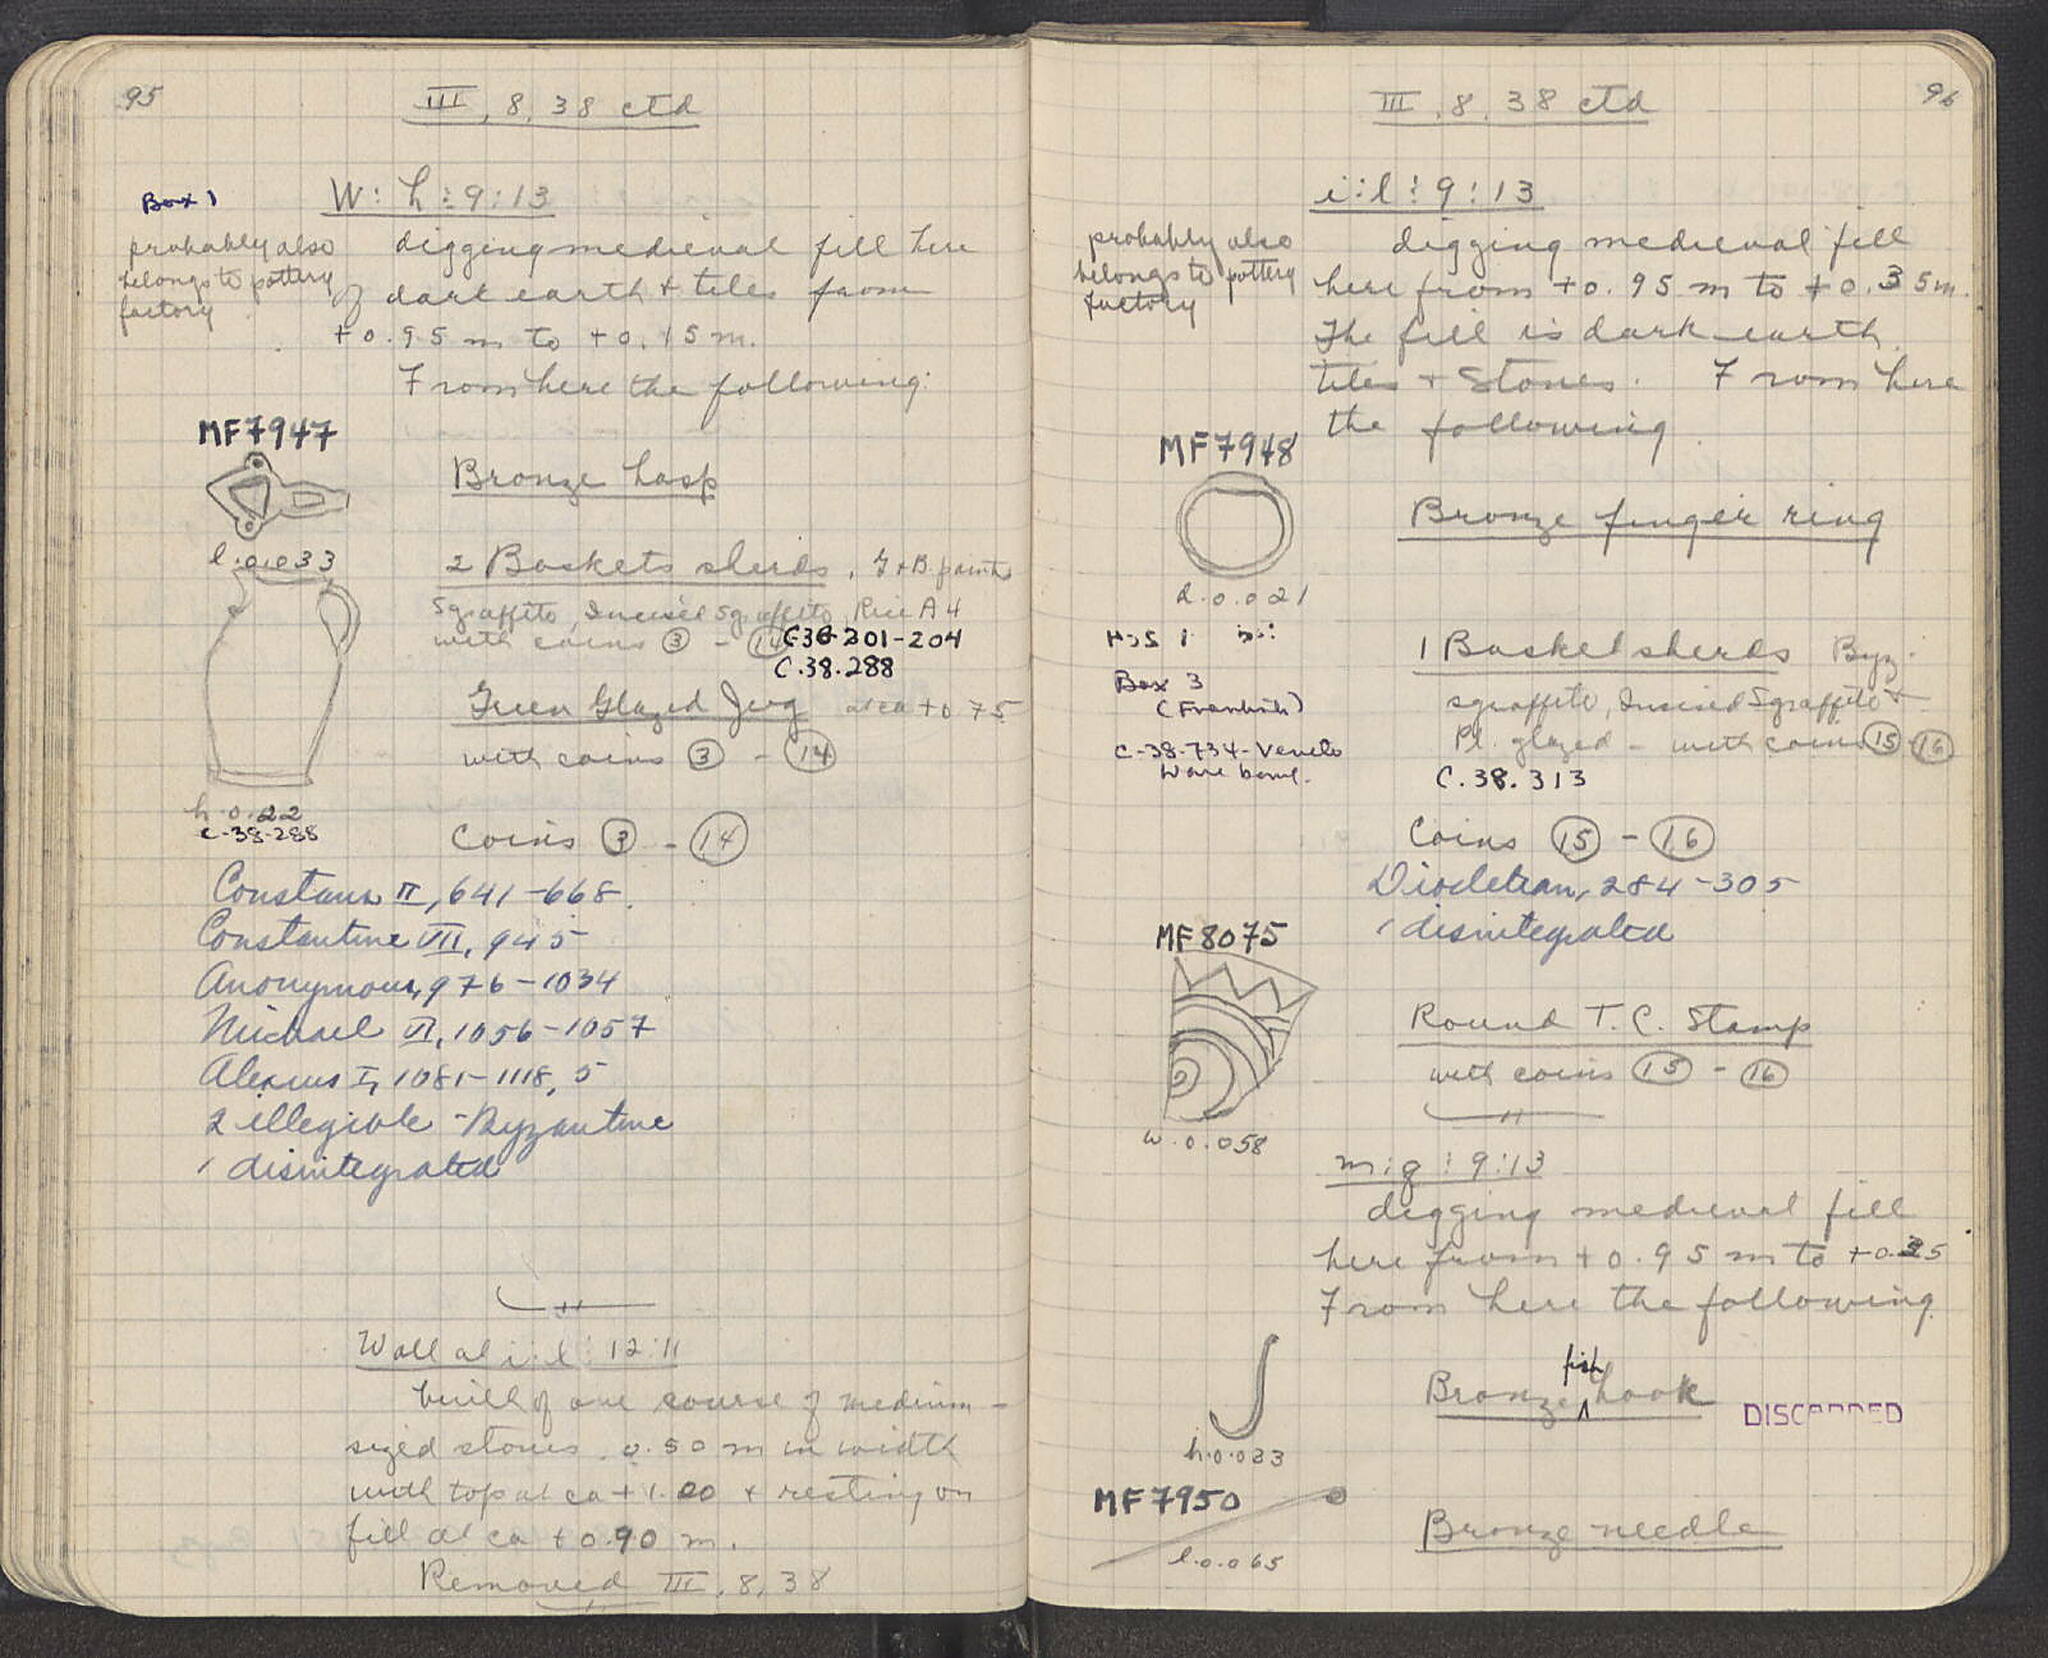 95
III, 8, 38 ctd
W: h: 9:13
Box 1
probably also
belongs to pottery
factory
digging medieval fill here
of dark earth + tiles from
+0.95 m to +0.15 m.
From here the following:
MF7947
Bronze hasp
l. 0.033
2 Baskets sherds, G + B. paint
Sgraffito, Incised Sgraffito, Rice A4
with coins 3 - 14 C-38-201-204
C.38.288
Green Glazed Jug at ca +0.75
with coins 3 - 14
h. 0.22
C-38-288
Coins 3 - 14
Constans II, 641-668.
Constantine VII, 945
Anonymous, 976-1034
Michael VI, 1056-1057
Alexius I, 1081-1118, 5
2 illegible - Byzantine
1 disintegrated
Wall at i:l: 12:11
built of one course of medium-
sized stones, 0.50 m in width
with top at ca +1.00 + resting on
fill at ca +0.90 m.
Removed III, 8, 38
96
III, 8, 38 ctd
i:l: 9:13
probably also
belongs to pottery
factory
digging medieval fill
here from +0.95 m to +0.35 m.
The fill is dark earth,
tiles + stones. From here
the following
MF7948
Bronze finger ring
d. 0.021
1 Basket sherds Byz.
sgraffito, Incised Sgraffito +
Pl. glazed - with coins 15 - 16
C.38.313
Box 3
(Frankish)
C-38-734-Veneto
Ware bowl.
Coins 15 - 16
Diocletian, 284-305
1 disintegrated
MF8075
Round T.C. Stamp
with coins 15 - 16
w. 0.058
m:q: 9:13
digging medieval fill
here from +0.95 m to +0.35
From here the following
Bronze fish hook DISCARDED
h. 0.033
MF7950
Bronze needle
l. 0.065